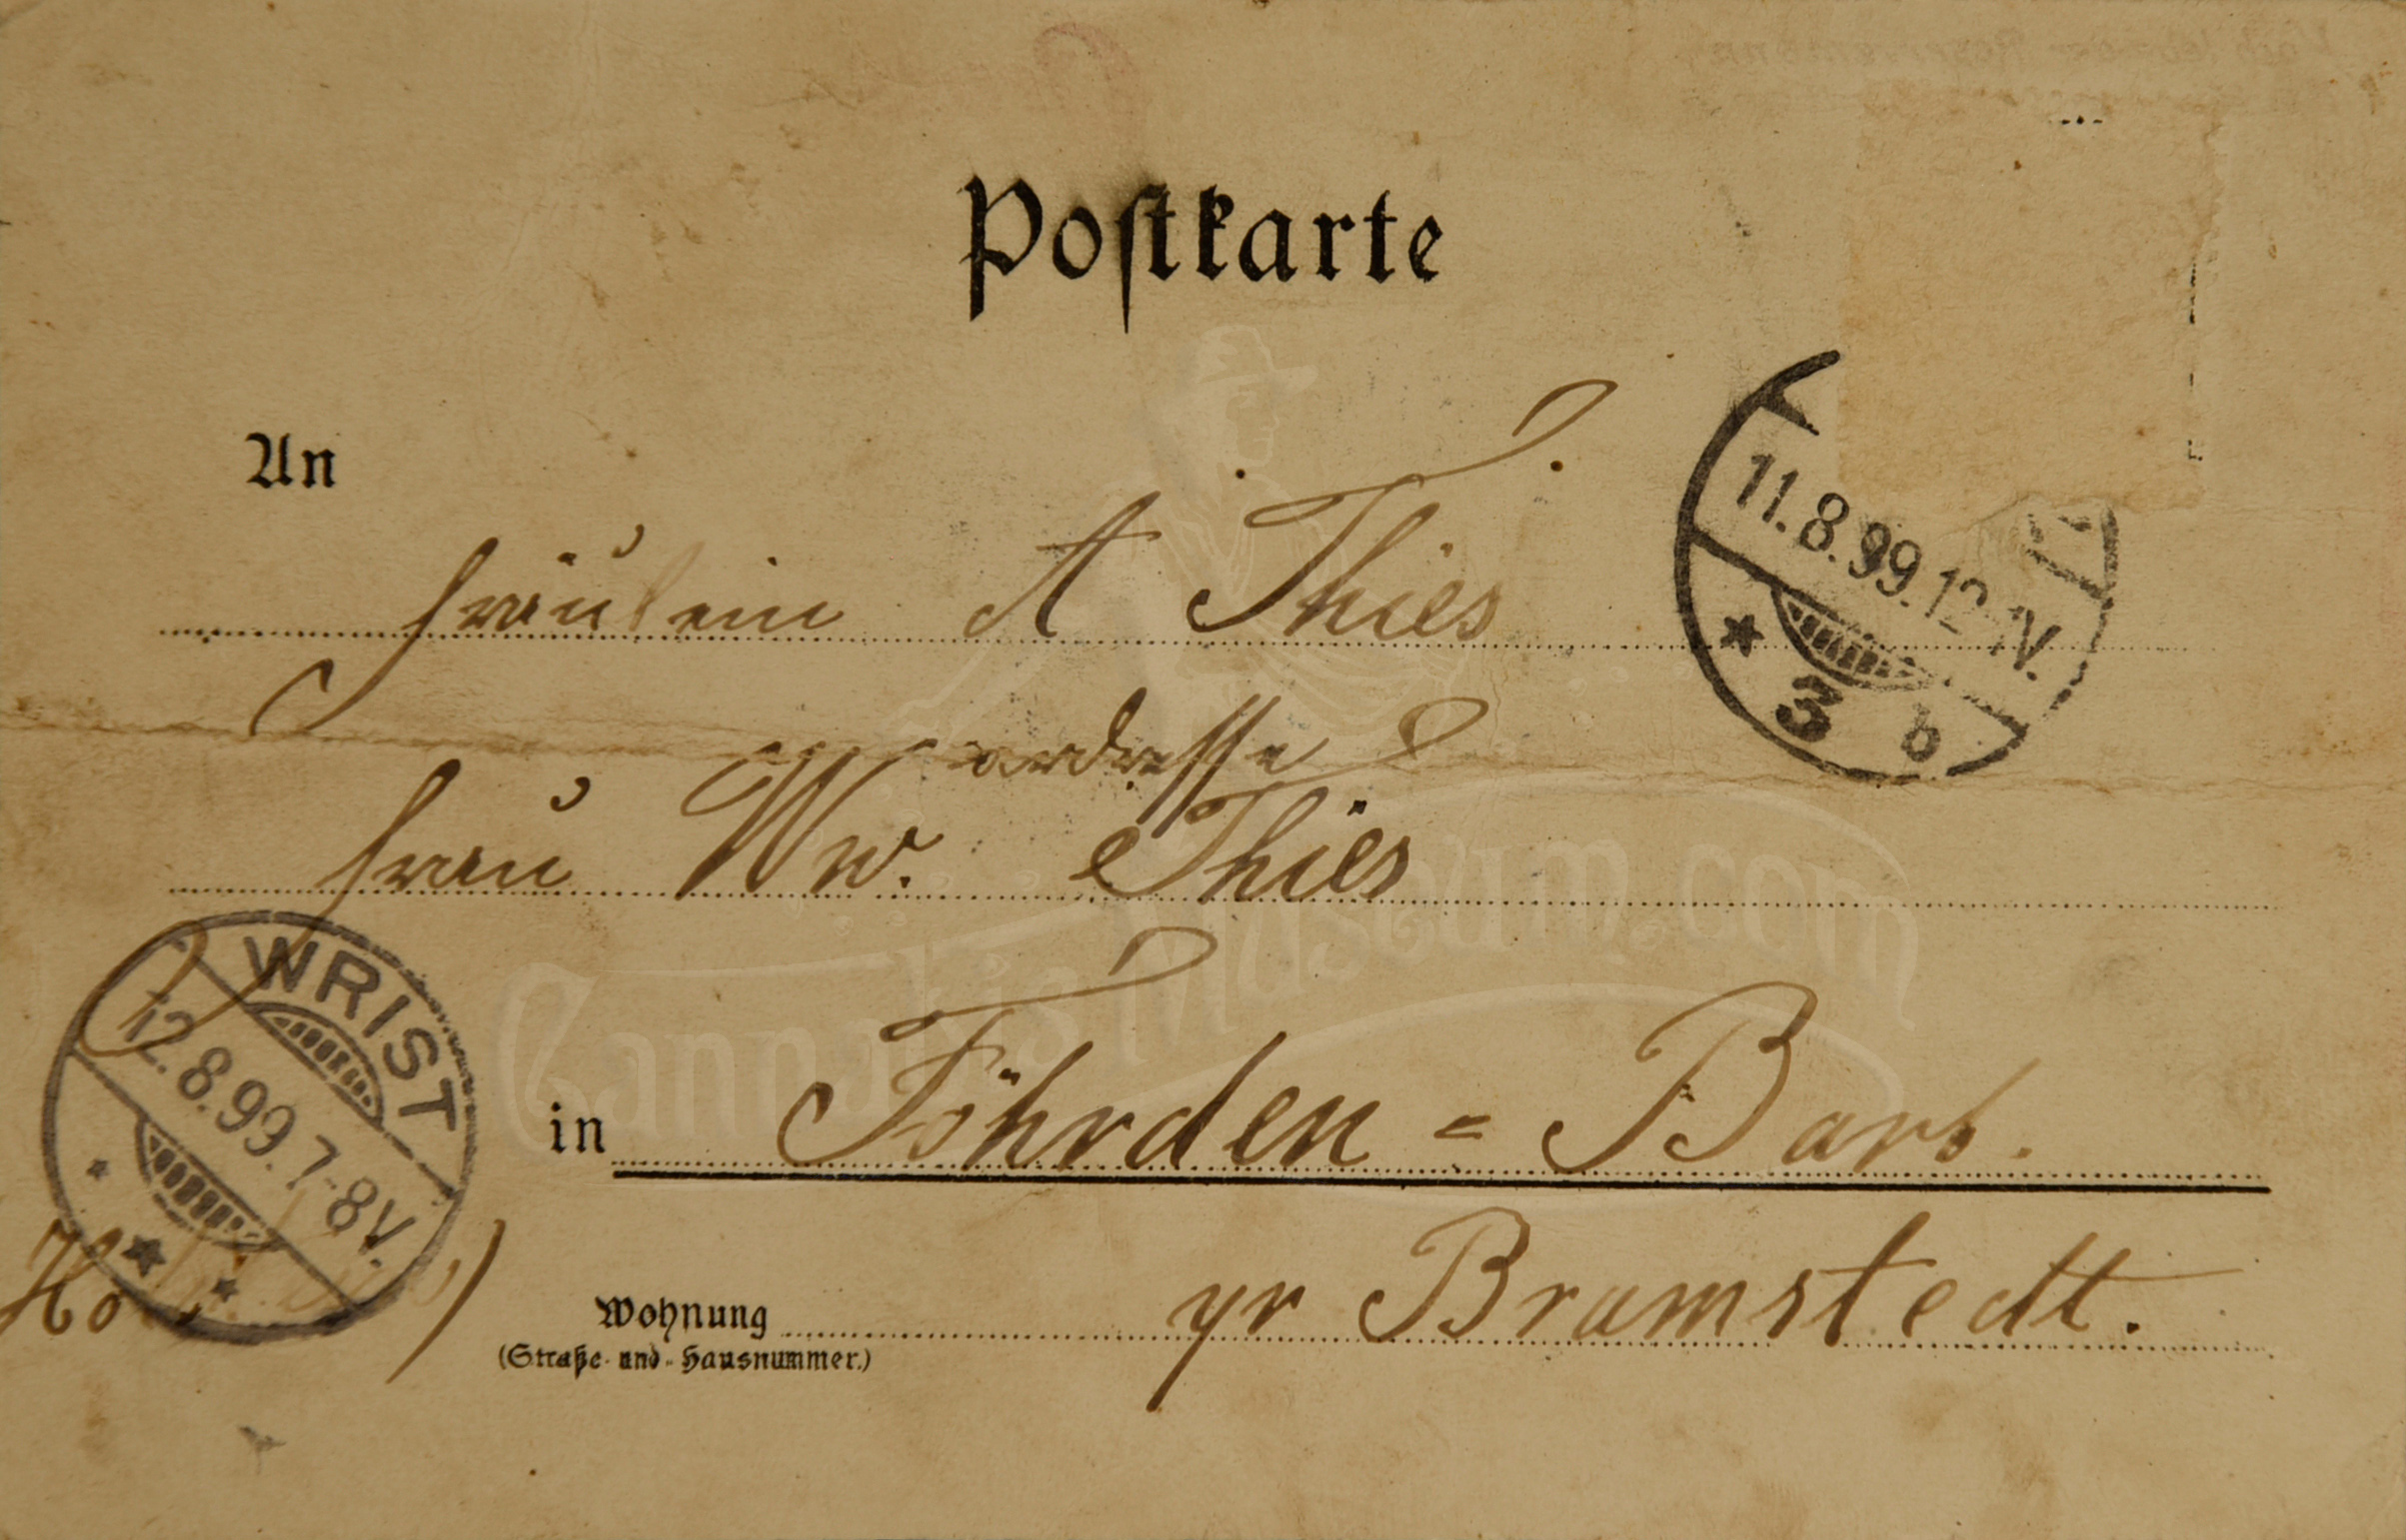 Postkarte
An
Fräulein A Thies
adresse
Frau Ww. Thies
in Föhrden = Barl.
Wohnung pr Bramstedt.
(Straße und Hausnummer.)
11.8.99.12-1N.
3 b
WRIST
12.8.99.7-8V.
CannabisMuseum.com